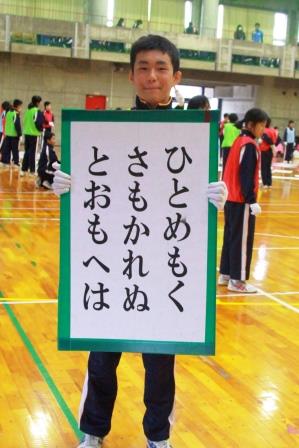 ひとめもく
さもかれぬ
とおもへは